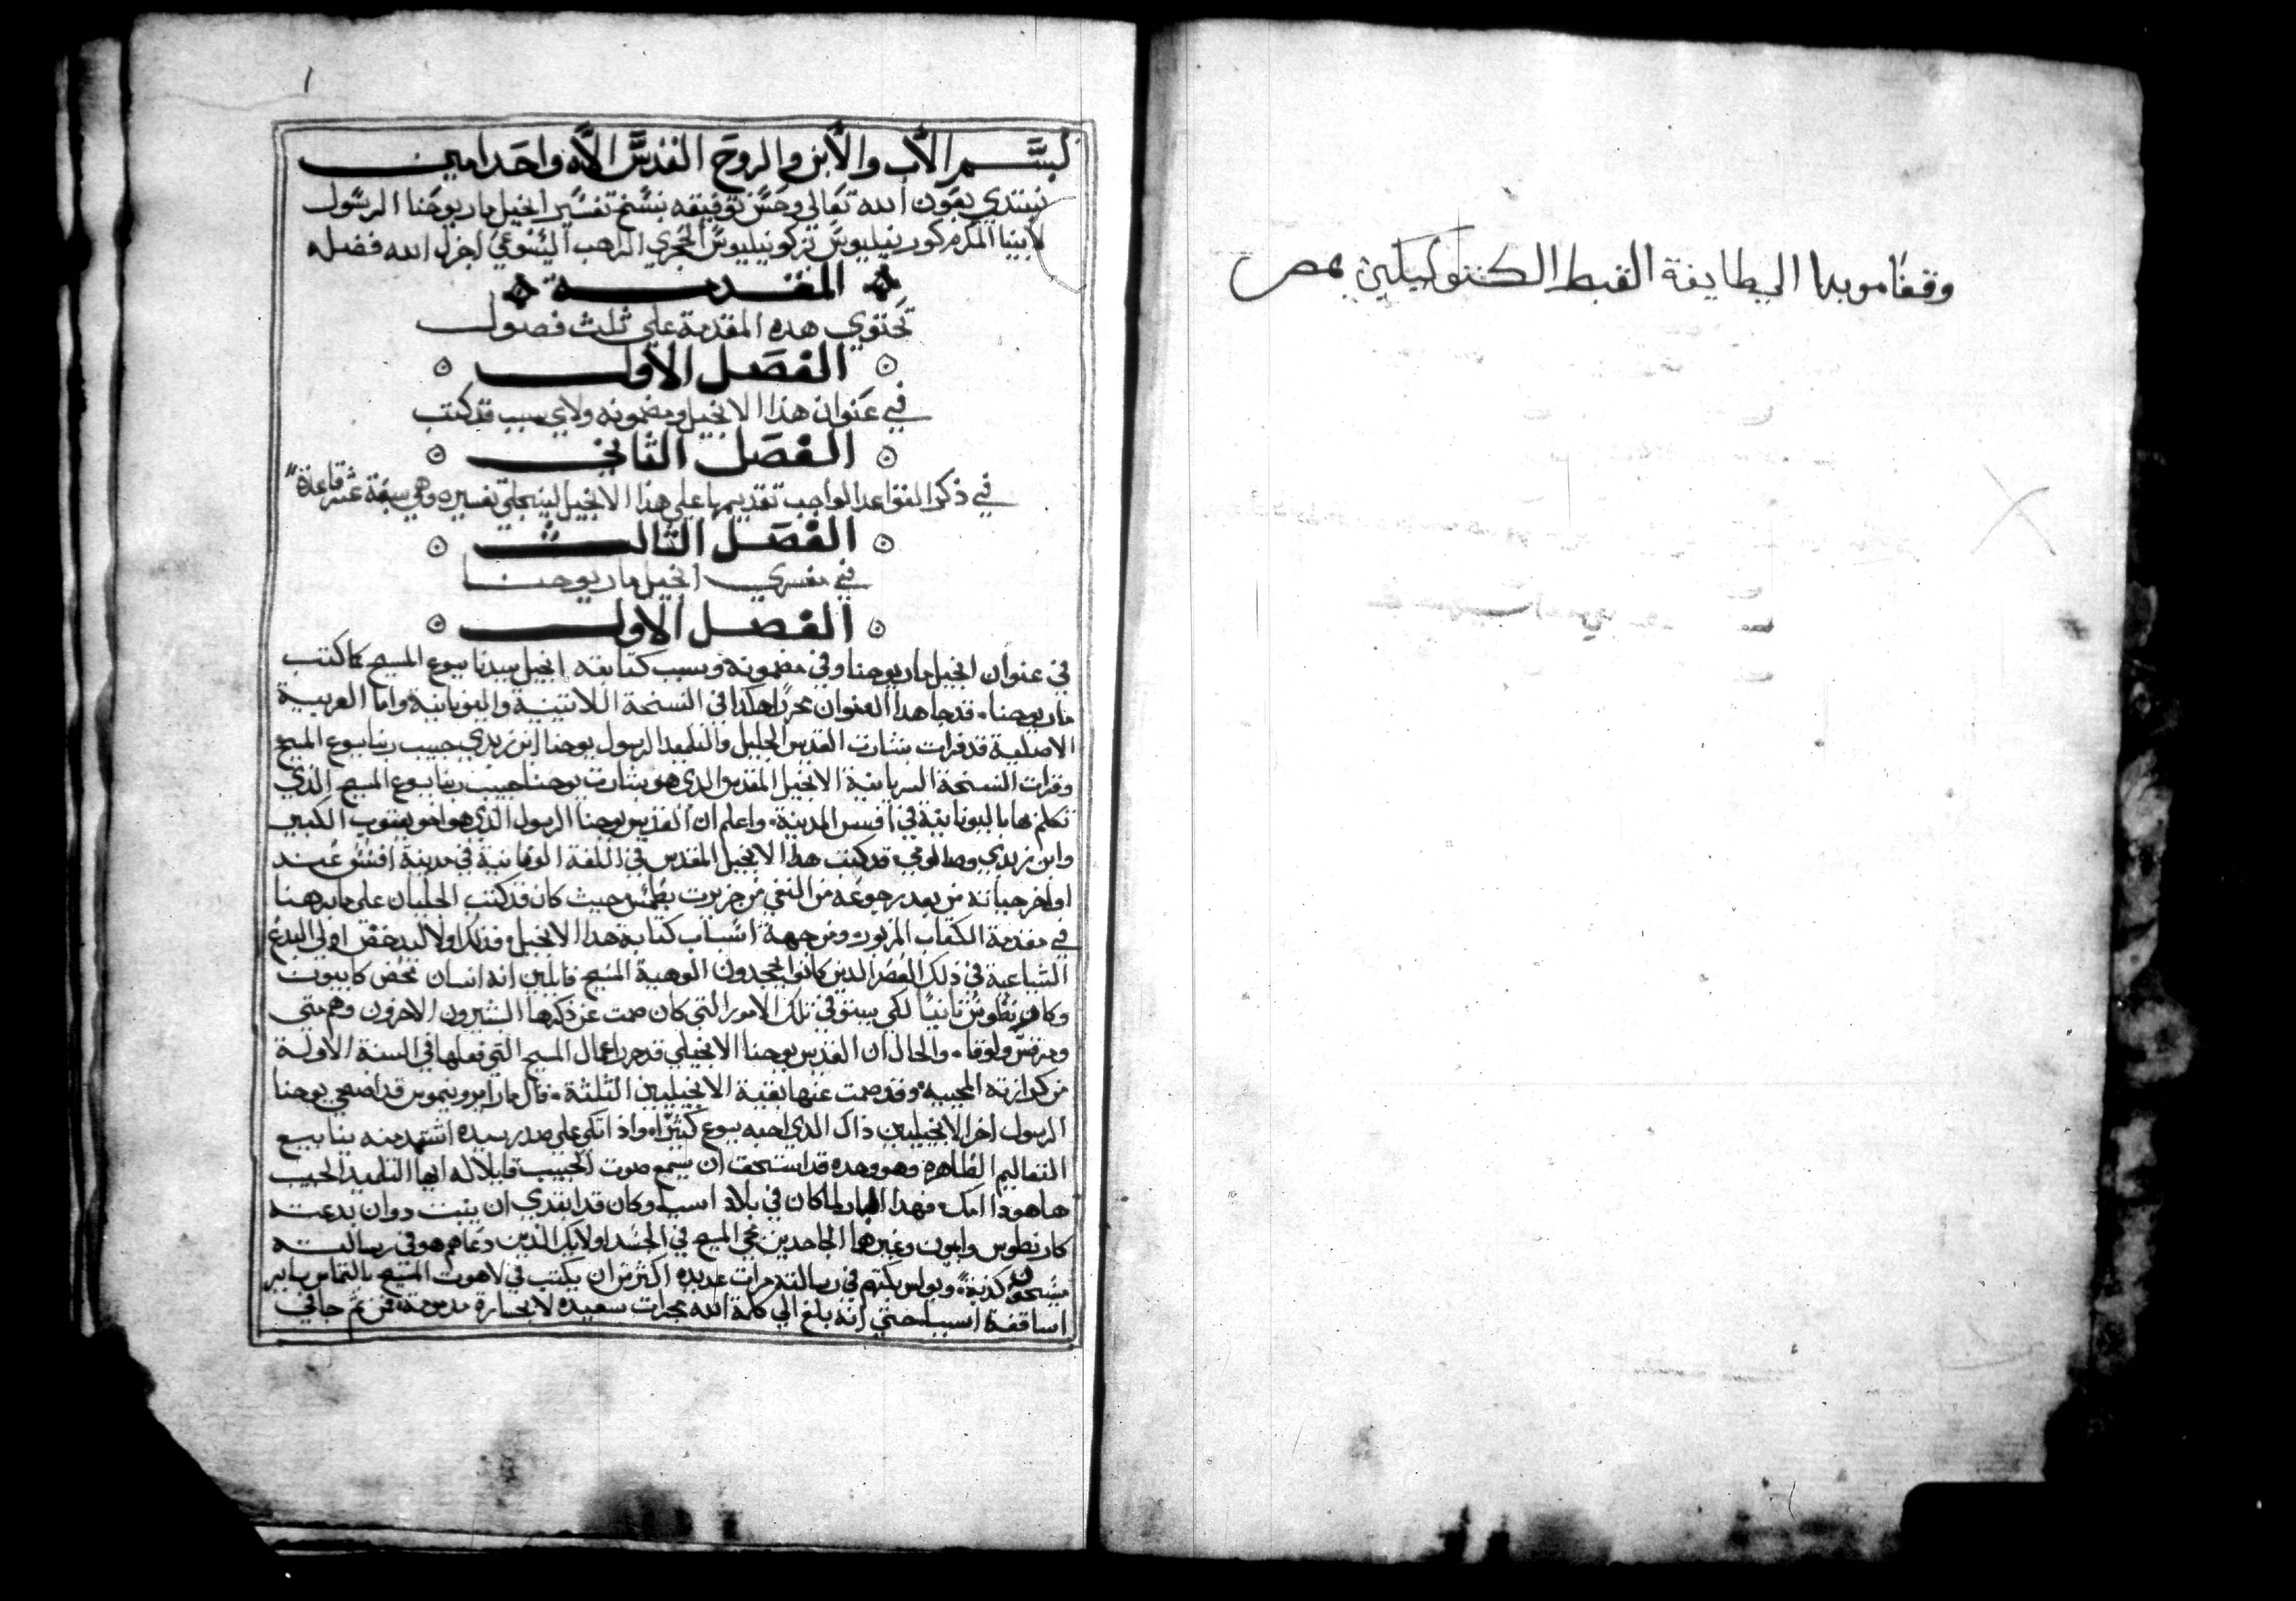 وقفًا موبدا الي طايفة القبط الكتوليكيين بمصر
١
بسم الاب والابن والروح القدس الاه واحد امين
نبتدي بعون الله تعالي وحسن توفيقه بنسخ تفسير انجيل مار يوحنا الرسول
لابينا المكرم كورنيليوس تركورنيليوس الحجري الراهب اليسوعي اجزل الله فضله
المقدمة
تحتوي هده المقدمة علي ثلث فصول
الفصل الاول
في عنوان هذا الانجيل ومضمونه ولاي سبب قد كتب
الفصل الثاني
في ذكر القواعد الواجب تقديمها علي هذا الانجيل لينجلي تفسيره وهي سبعة عشر قاعدة
الفصل الثالث
في مفسري انجيل مار يوحنا
الفصل الاول
في عنوان انجيل مار يوحنا وفي مضمونه وسبب كتابته انجيل سيدنا يسوع المسيح كما كتب
مار يوحنا. قد جا هدا العنوان محررا هكدا في النسخة اللاتينية واليونانية واما العربية
الاصلية قد قرات بشارت القديس الجليل والتلميد الرسول يوحنا ابن زبدي حبيب ربنا يسوع المسيح
وقرات النسخة السريانية الانجيل المقدس الدي هو بشارت يوحنا حبيب ربنا يسوع المسيح الذي
تكلم بها باليونانية في افسس المدينة. واعلم ان القديس يوحنا الرسول الذي هو اخو يعقوب الكبير
وابن زبدي وصالومي قد كتب هدا الانجيل المقدس في اللغة اليونانية في مدينة افسس عند
اواخر حياته من بعد رجوعه من النفي من جزيرت بطمس حيث كان قد كتب الجليان علي ما برهنا
في مقدمة الكتاب المزبور ومن جهة اسباب كتابة هدا الانجيل فذلك اولا ليدحض اولي البدع
الشباعية في ذلك العصر الدين كانوا يجحدون الوهية المسيح قايلين انه انسان محض كابيون
وكارنطوس ثانيًا لكي يبتو في تلك الامور التي كان صمت عن ذكرها المبشرون الاخرون وهم متي
ومرقس ولوقا. والحال ان القديس يوحنا الانجيلي قد حرر اعمال المسيح التي فعلها في السنة الاولة
من كرازته المجيبه وقد صمت عنها بقية الانجيليين الثلثة. قال مار ايرونيموس قد اضحي يوحنا
الرسول اخر الانجيليين ذاك الدي احبه يسوع كثيرًا. واذ اتكي علي صدر سيده استمد منه ينابيع
التعاليم الطاهرة وهو وحده قد استحق ان يسمع صوت الحبيب قايلا له ايها التلميد الحبيب
ها هودا امك. فهدا لما كان في بلاد اسيا وكان قد ابتدي ان ينبت دوان بدعت
كارنطوس وابيون وغيرهما الجاحدين مجي المسيح في الجسد اولايك الذين دعاهم هو في رسالته
كذبة. وبولس في رسالته مرات عديده اكثر من ان يكتب في لاهوت المسيح بالتماس ساير
اساقفة اسيا حتي انه بلغ الي كلمة الله سعيده لا بجسارة مدمومة فمن ثم جا في